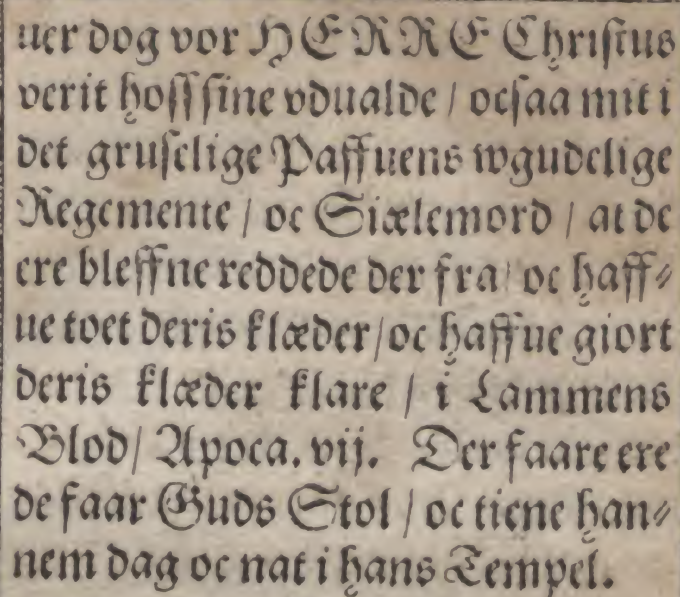 uer dog vor HERRE Christus
verit hoss sine vdualde / ocsaa mit i
det gruselige Paffuens wgudelige
Regemente / oc Siælemord / at de
ere bleffne reddede der fra / oc haff⸗
ue toet deris klæder / oc haffue giort
deris klæder klare / i Lammens
Blod / Apoca. vij. Der faare ere
de faar Guds Stol / oc tiene han⸗
nem dag oc nat i hans Tempel.